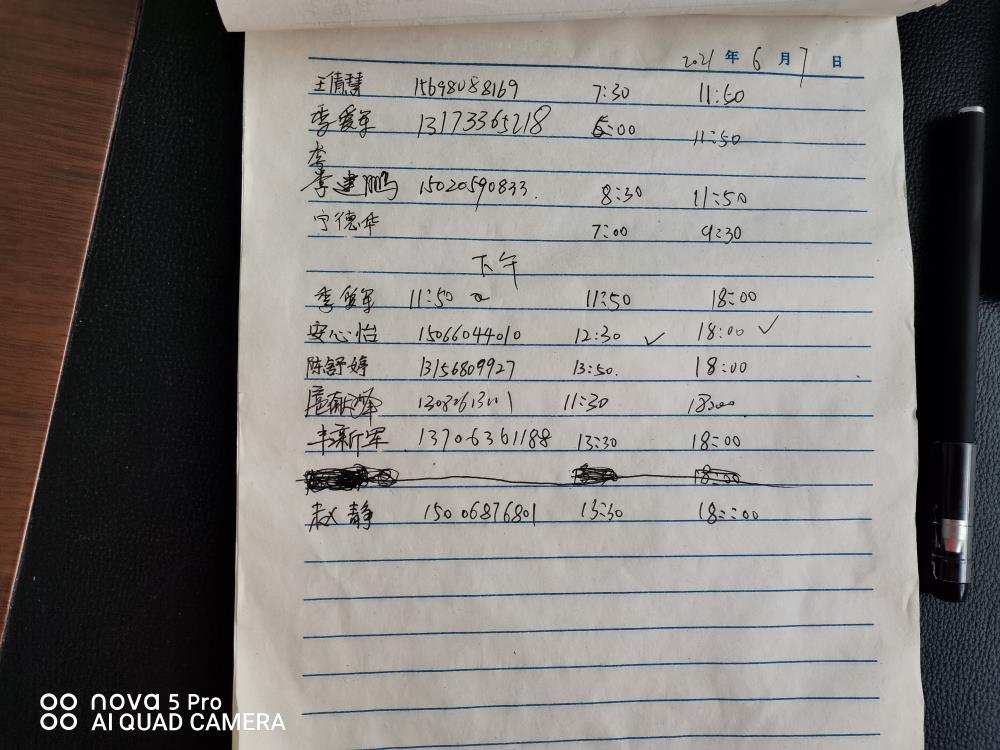 2021 年 6 月 7 日
王倩慧 15698088169 7:30 11:50
季爱军 13173365218 6:00 11:50
李
李建鹏 15020590833. 8:30 11:50
宁德华 7:00 9:30
下午
季爱军 11:50 11:50 18:00
安心怡 15066044010 12:30 ✓ 18:00 ✓
陈舒婷 13156809927 13:50. 18:00
11:30
丰新军 13706361188 13:30 18:00
18:00
赵静 15006876801 13:30 18::00
nova 5 Pro
AI QUAD CAMERA